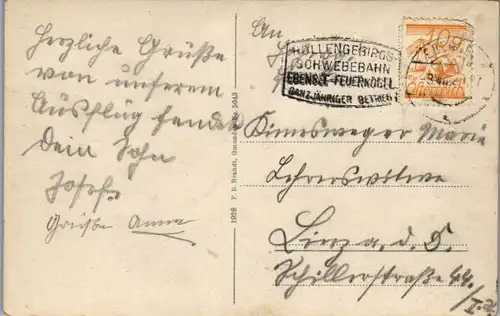 Herzliche Grüße
von unserem
Ausflug sendet
dein Sohn
Josef.
Grüße Anna
1928 P. E. Brandt, Gmunden Nr. 5043
An
HÖLLENGEBIRGS
SCHWEBEBAHN
EBENSEE-FEUERKOGEL
GANZJÄHRIGER BETRIEB
Marie
Lehrerswitwe
Linz a. d. D.
Schillerstraße 44.